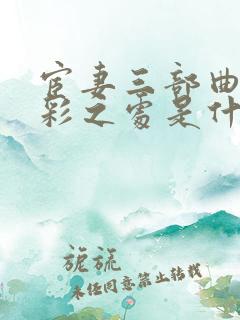 宦妻三部曲
彩之处是什
旎旎
未任同意禁止转载